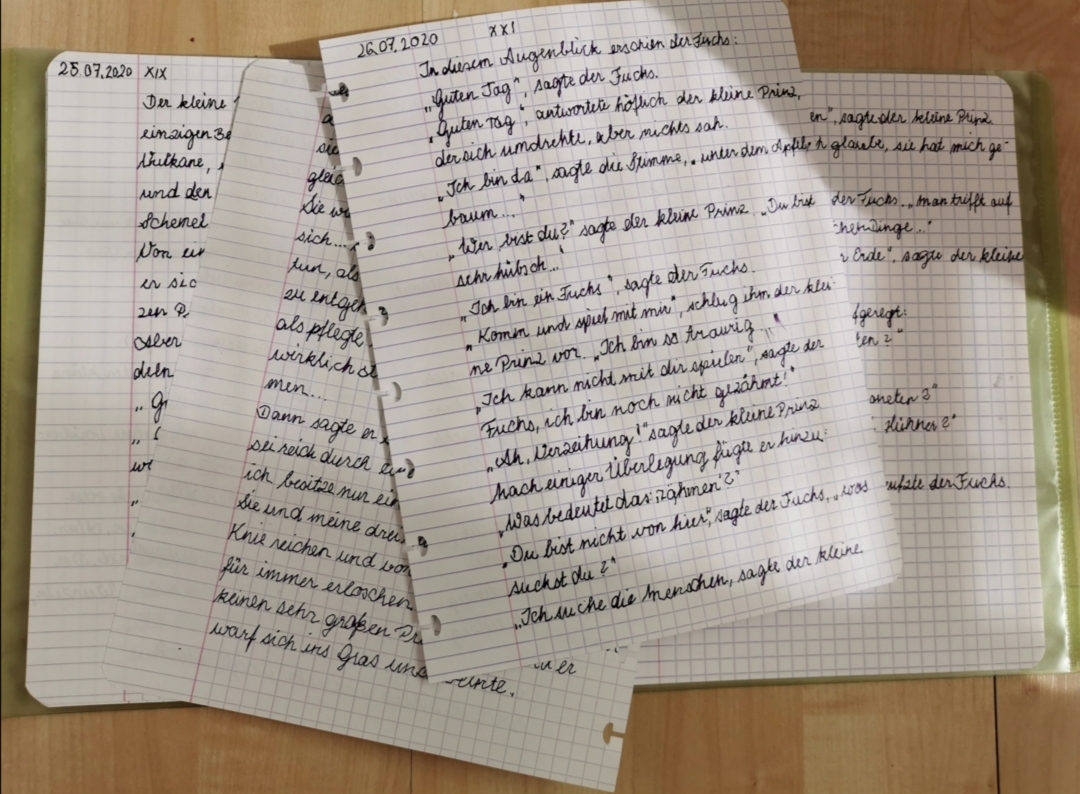 26.07.2020 XXI
In diesem Augenblick erschien der Fuchs:
„Guten Tag", sagte der Fuchs.
„Guten Tag", antwortete höflich der kleine Prinz,
der sich umdrehte, aber nichts sah.
„Ich bin da", sagte die Stimme, „unter dem Apfel-
baum..."
„Wer bist du?" sagte der kleine Prinz. „Du bist
sehr hübsch..."
„Ich bin ein Fuchs", sagte der Fuchs.
„Komm und spiel mit mir", schlug ihm der klei-
ne Prinz vor. „Ich bin so traurig..."
„Ich kann nicht mit dir spielen", sagte der
Fuchs, ich bin noch nicht gezähmt!"
„Ah, Verzeihung!" sagte der kleine Prinz.
Nach einiger Überlegung fügte er hinzu:
„Was bedeutet das: zähmen?"
„Du bist nicht von hier", sagte der Fuchs, „was
suchst du?"
„Ich suche die Menschen, sagte der kleine
25.07.2020 XIX
Der kleine
einzigen Be
Vulkane,
und den
Schemel
Von ein
er sic
zen P
Aber
deln
„G
sic
gleic
Sie w
sich...
tun, als
zu entgeh
als pflegte
wirklich st
men...
Dann sagte er
sei reich durch ei
ich besitze nur ein
Sie und meine drei
Knie reichen und von
für immer erloschen
keinen sehr großen Pr
warf sich ins Gras und weinte.
en", sagte der kleine Prinz
h glaube, sie hat mich ge-
der Fuchs. „Man trifft auf
chen Dinge..."
r Erde", sagte der kleine
fgeregt:
ten?"
aneten?"
Hühner?"
ufzte der Fuchs.
er